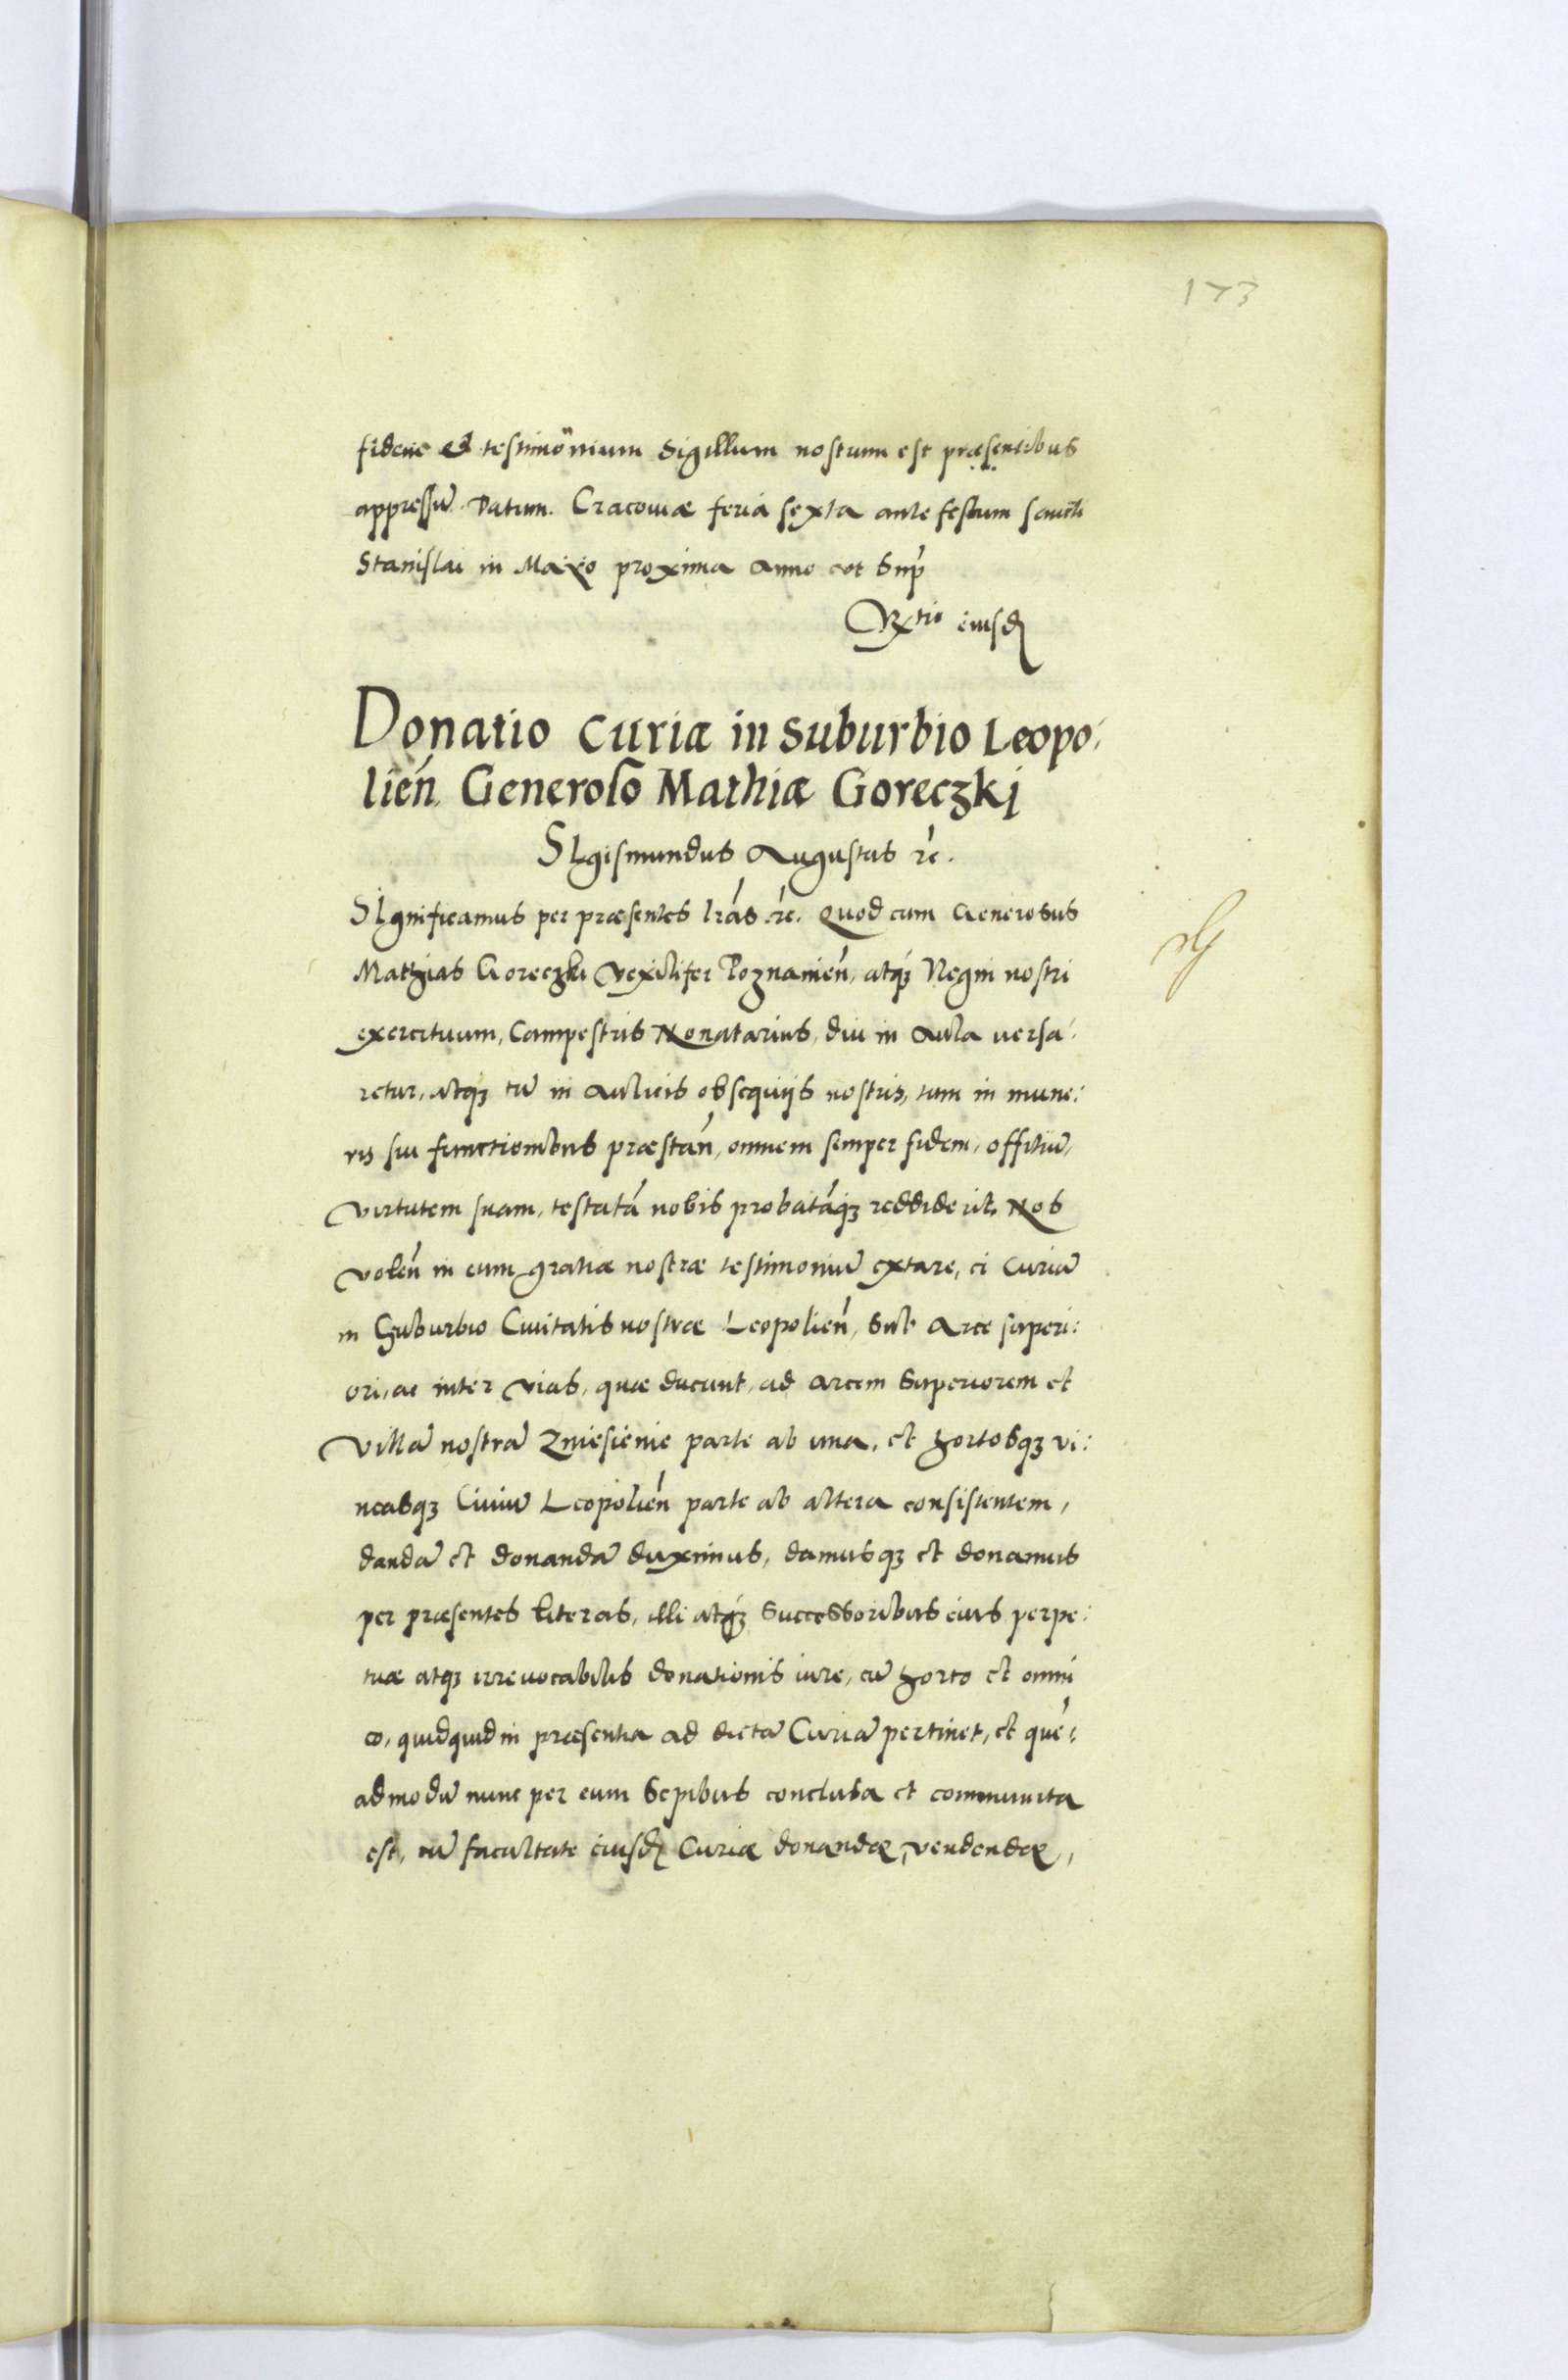 173
fidem et testimonium sigillum nostrum est præsentibus
appressū. Datum. Cracoviæ feria sexta ante festum sancti
Stanislai in Maio proxima Anno ut Sup̄
eiusd̄
Donatio Curiæ in suburbio Leopo:
lień. Generoso Mathiæ Goreczkj
SIgismundus Augustus ꝛc̄.
SIgnificamus per præsentes l̄ras ꝛc̄. Quod cum Generosus
Mathias Goreczki Vexilifer Poznanień, atq́ꝫ Regni nostri
exercituum, Campestris Nonatarius, diu in Aula versa:
retur, atq́ꝫ tū in Aulicis obsequijs nostris, tum in mune:
ris sui functionibus præstań, omnem semper fidem, offitiū,
virtutem suam, testatā nobis probatāqꝫ reddiderit, Nos
voleń in eum gratiæ nostræ testimoniū extare, ei Curiā
in Suburbio Civitatis nostræ Leopolień, sub Arce superi:
ori, ac inter vias, quæ ducunt, ad arcem Superiorem et
Villā nostrā Zniesienie parte ab una, et hortosqꝫ vi:
neasqꝫ Civiū Leopolień parte ab altera consistentem,
dandā et donandā duximus, damusqꝫ et donamus
per præsentes literas, illi atq́ꝫ Successoribus eius perpe:
tuæ atqꝫ irrevocabilis donationis iure, cū horto et omni
eo, quidquid in præsentia ad dictā Curiā pertinet, et quē:
admodū nunc per eum Sepibus conclusa et communita
est, cū facultate eiusd̄ Curiæ donandæ, vendendæ,